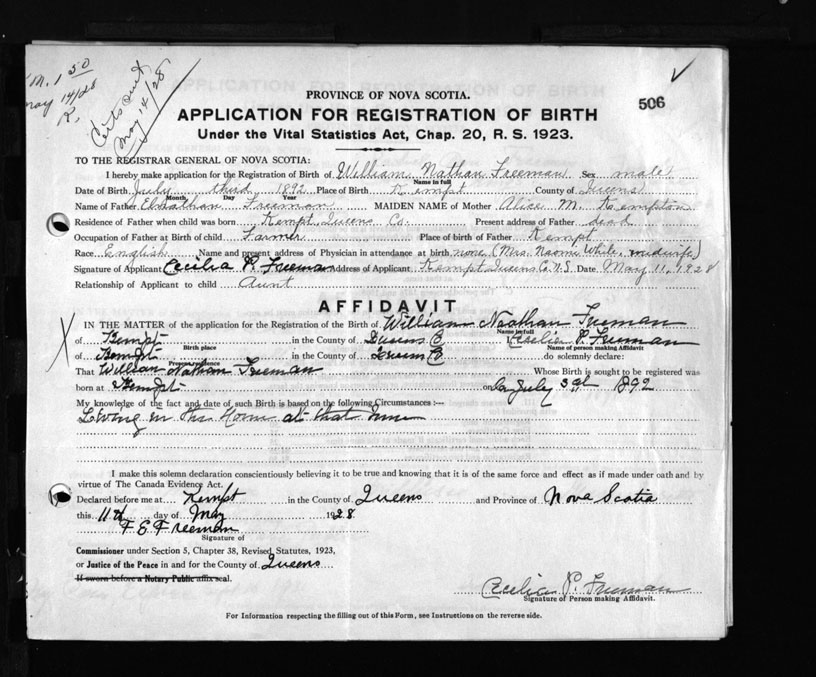 M. 1 50
May 14/28
R.
Certs sent
May 14/28
506
PROVINCE OF NOVA SCOTIA.
APPLICATION FOR REGISTRATION OF BIRTH
Under the Vital Statistics Act, Chap. 20, R. S. 1923.
TO THE REGISTRAR GENERAL OF NOVA SCOTIA:
I hereby make application for the Registration of Birth of William Nathan Freeman Sex male
Name in full
Date of Birth July third 1892 Place of Birth Kempt County of Queens
Month Day Year
Name of Father Elnathan Freeman MAIDEN NAME of Mother Alice M. Kempton
Residence of Father when child was born Kempt, Queens Co. Present address of Father dead
Occupation of Father at Birth of child Farmer Place of birth of Father Kempt
Race English Name and present address of Physician in attendance at birth none (Mrs. Naomi While, midwife)
Signature of Applicant Cecilia P. Freeman Address of Applicant Kempt Queens Co. N.S. Date May 11, 1928
Relationship of Applicant to child Aunt
AFFIDAVIT
IN THE MATTER of the application for the Registration of Birth of William Naathan Freeman
Name in full
of Kempt in the County of Queens Co I, Cecilia P. Freeman
Birth place Name of person making Affidavit
of Kempt in the County of Queens Co do solemnly declare:
That William Nathan Freeman Whose Birth is sought to be registered was
born at Kempt on July 3rd 1892
My knowledge of the fact and date of such Birth is based on the following Circumstances :—
Living in the Home at that time
I make this solemn declaration conscientiously believing it to be true and knowing that it is of the same force and effect as if made under oath and by
virtue of The Canada Evidence Act.
Declared before me at Kempt in the County of Queens and Province of Nova Scotia
this 11th day of May 1928
F E Freeman
Signature of
Commissioner under Section 5, Chapter 38, Revised Statutes, 1923,
or Justice of the Peace in and for the County of Queens
If sworn before a Notary Public affix seal.
Cecilia P. Freeman
Signature of Person making Affidavit.
For Information respecting the filling out of this Form, see Instructions on the reverse side.